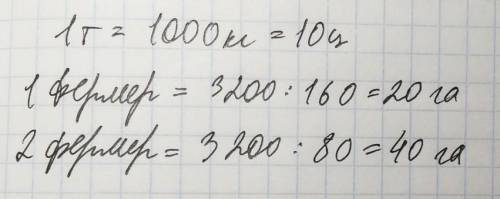 1т = 1000кг = 10ц
1 фермер = 3200 : 160 = 20 га
2 фермер = 3200 : 80 = 40 га